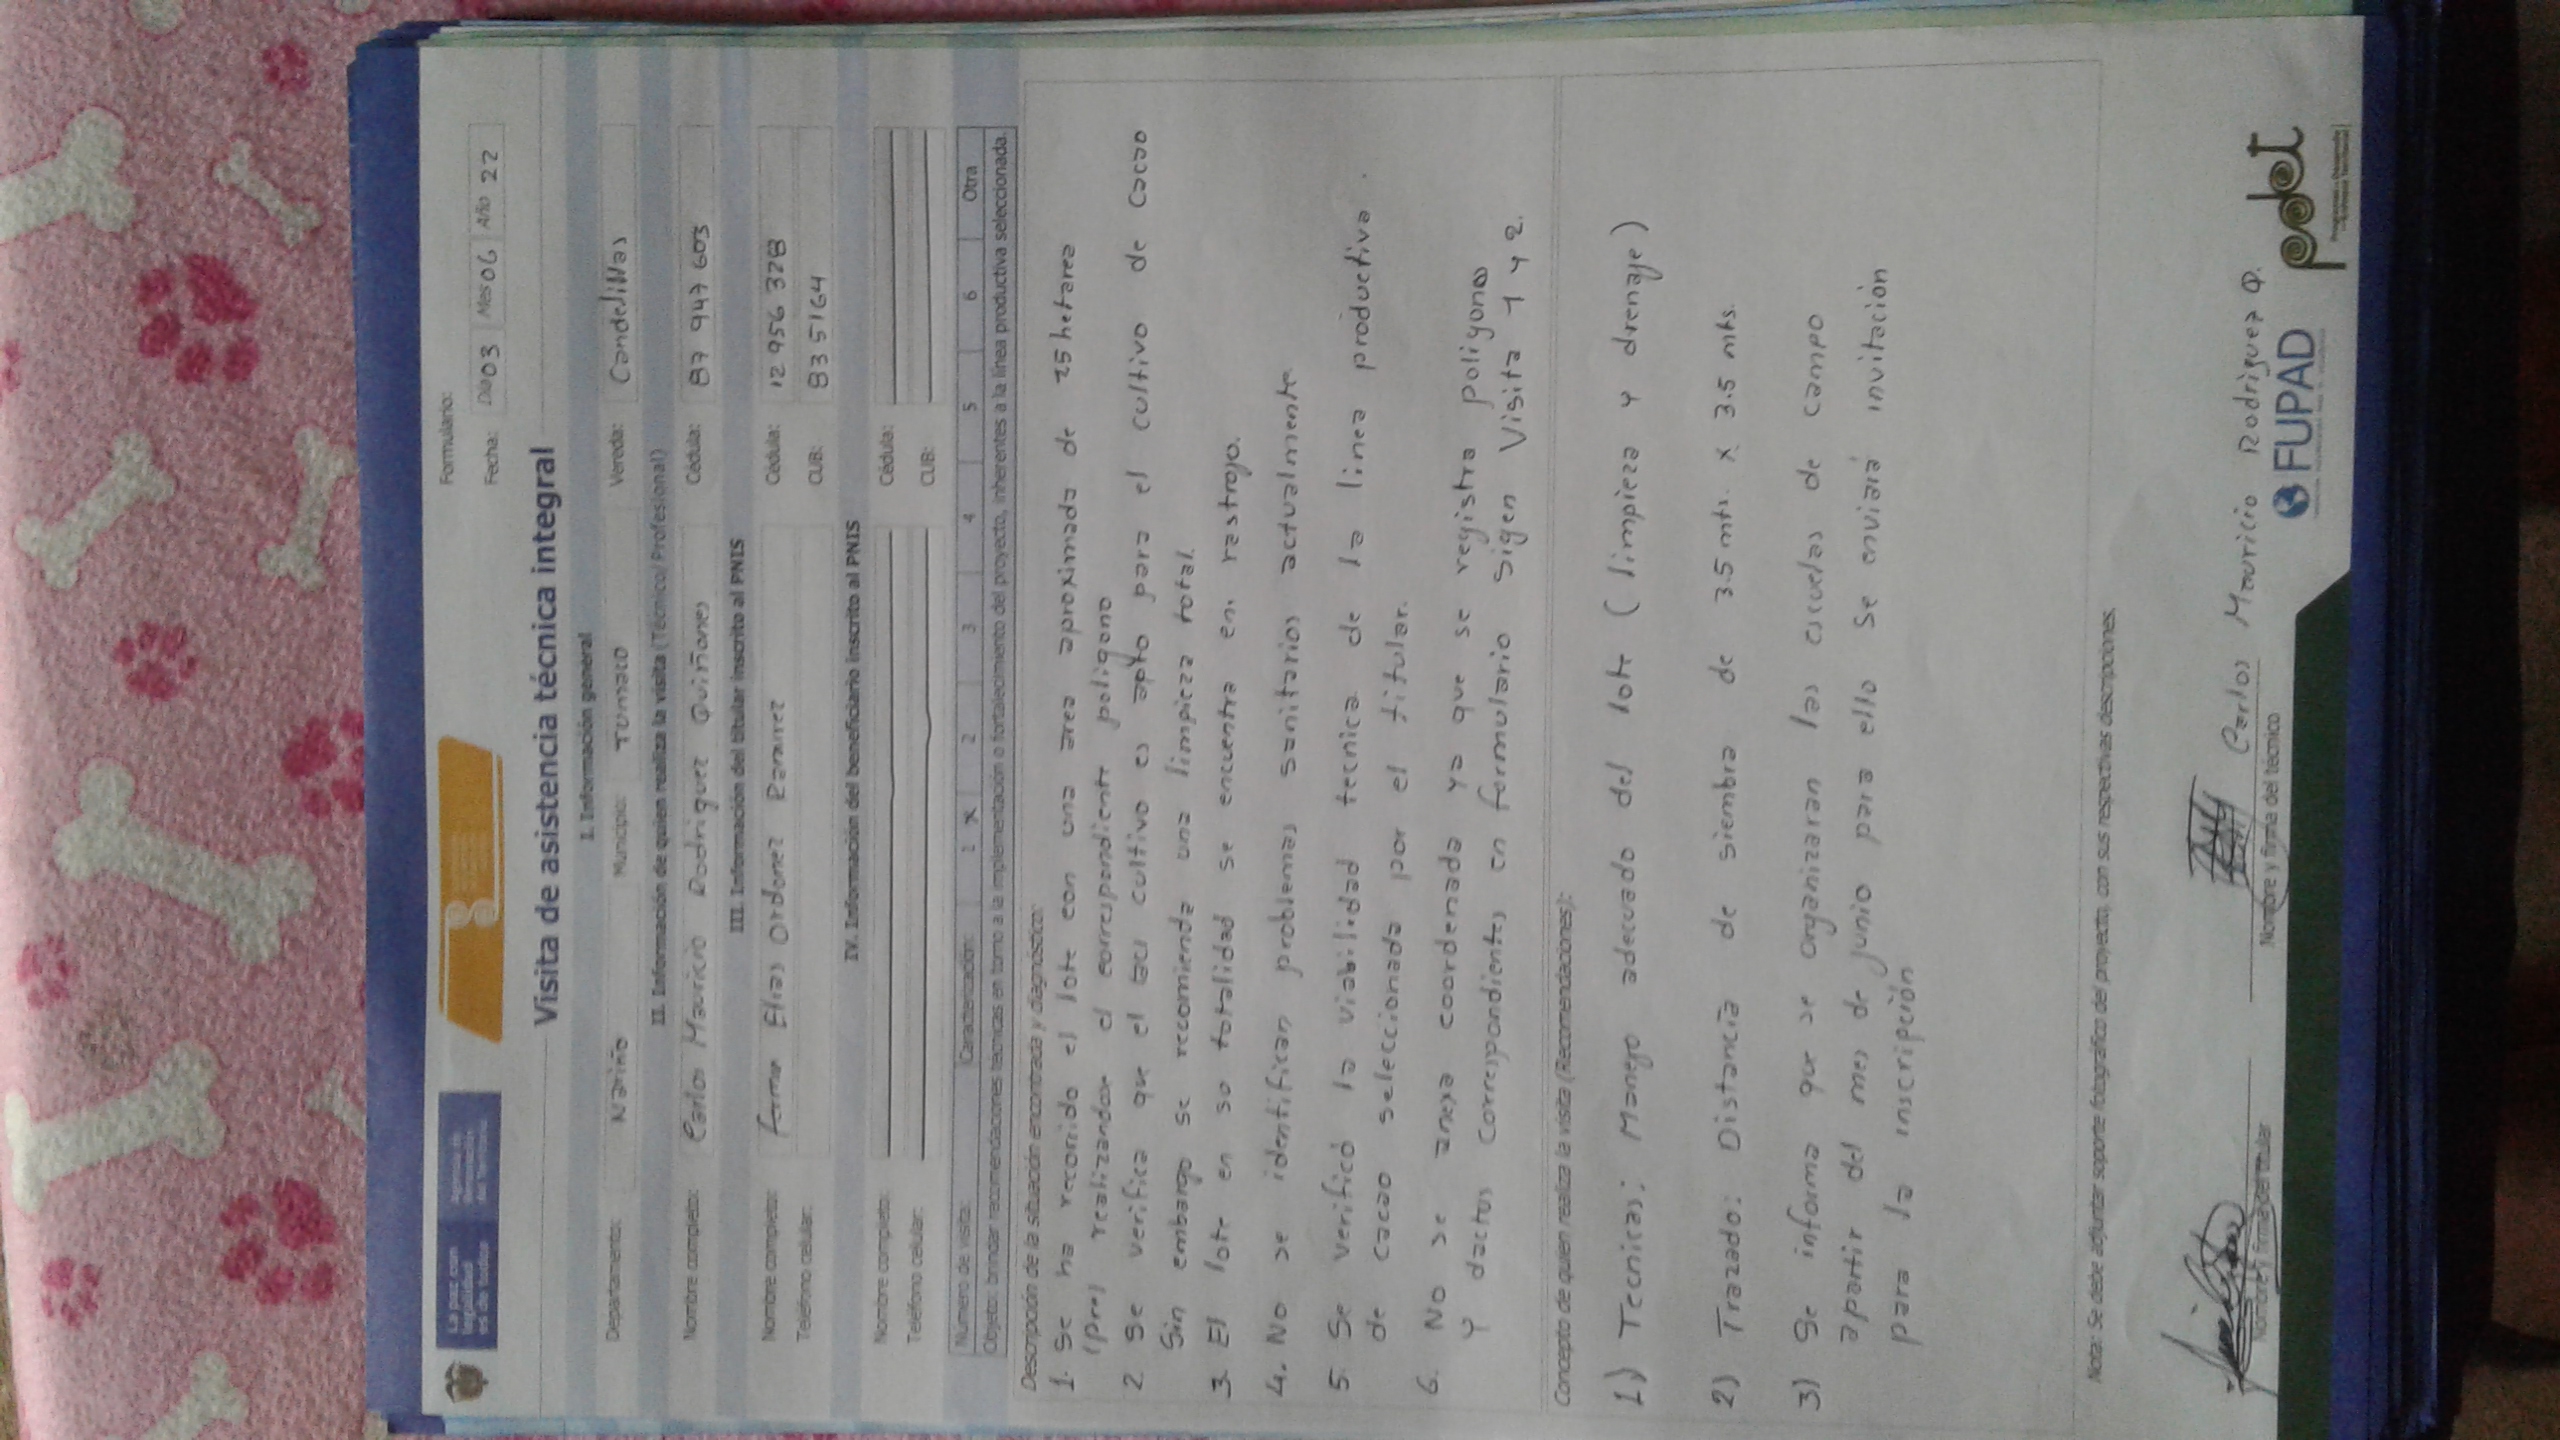 La paz con
legalidad
es de todos
Agencia de
Renovación
del Territorio
Formulario:
Fecha: Día 03 Mes 06 Año 22
Visita de asistencia técnica integral
I. Información general
Departamento: Nariño Municipio: Tumaco Vereda: Candelillas
II. Información de quien realiza la visita (Técnico/ Profesional)
Nombre completo: Carlos Mauricio Rodriguez Quiñones Cédula: 87 947 603
III. Información del titular inscrito al PNIS
Nombre completo: Elias Ordoñez Ramirez Cédula: 12 956 328
Teléfono celular: CUB: 835164
IV. Información del beneficiario inscrito al PNIS
Nombre completo: Cédula:
Teléfono celular: CUB:
Número de visita: Caracterización: 1 X 2 3 4 5 6 Otra
Objeto: brindar recomendaciones técnicas en torno a la implementación o fortalecimiento del proyecto, inherentes a la línea productiva seleccionada.
Descripción de la situación encontrada y diagnóstico:
1. Se ha recorrido el lote con una area aproximada de 25 hetarea
(pre) realizandox el correspondiente poligono
2 Se verifica que el cultivo es apto para el cultivo de cacao
Sin embargo se recomienda una limpieza total.
3. El lote en su totalidad se encuentra en rastrojo.
4. No se identifican problemas sanitarios actualmente
5. Se verificó la viabilidad tecnica de la linea productiva
de cacao seleccionada por el titular.
6. No se anexa coordenada ya que se registra poligono
y dactos correspondientes en formulario sigen Visita 1 y 2.
Concepto de quien realiza la visita (Recomendaciones):
1) Tecnicas; Manejo adecuado del lote (limpieza y drenaje)
2) Trazado: Distancia de siembra de 3.5 mts. x 3.5 mts.
3) Se informa que se organizaran las escuelas de campo
apartir del mes de junio para ello se enviará invitación
para la inscripción
Nota: Se debe adjuntar soporte fotográfico del proyecto, con sus respectivas descripciones.
Carlos Mauricio Rodriguez Q.
Nombre y firma del titular
Nombre y firma del técnico
FUPAD
pdet